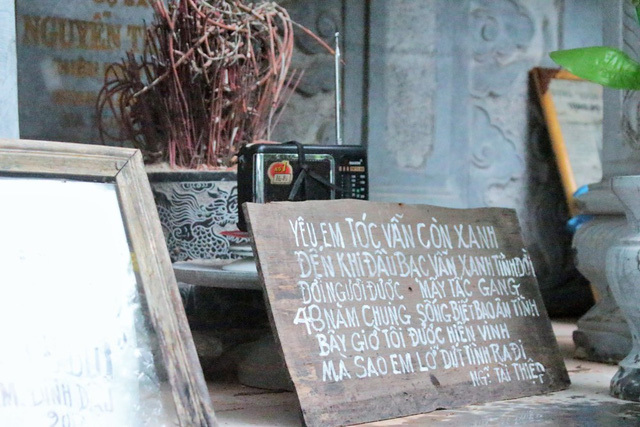 NGUYỄN
YÊU EM TÓC VẪN CÒN XANH
ĐẾN KHI ĐẦU BẠC VẪN XANH TÌNH ĐỜI
ĐỜI NGƯỜI ĐƯỢC MẤY TẤC GANG
48 NĂM CHUNG SỐNG BIẾT BAO ÂN TÌNH
BÂY GIỜ TÔI ĐƯỢC HIỂN VINH
MÀ SAO EM LỠ DỨT TÌNH RA ĐI
NGTÀI THIỆP